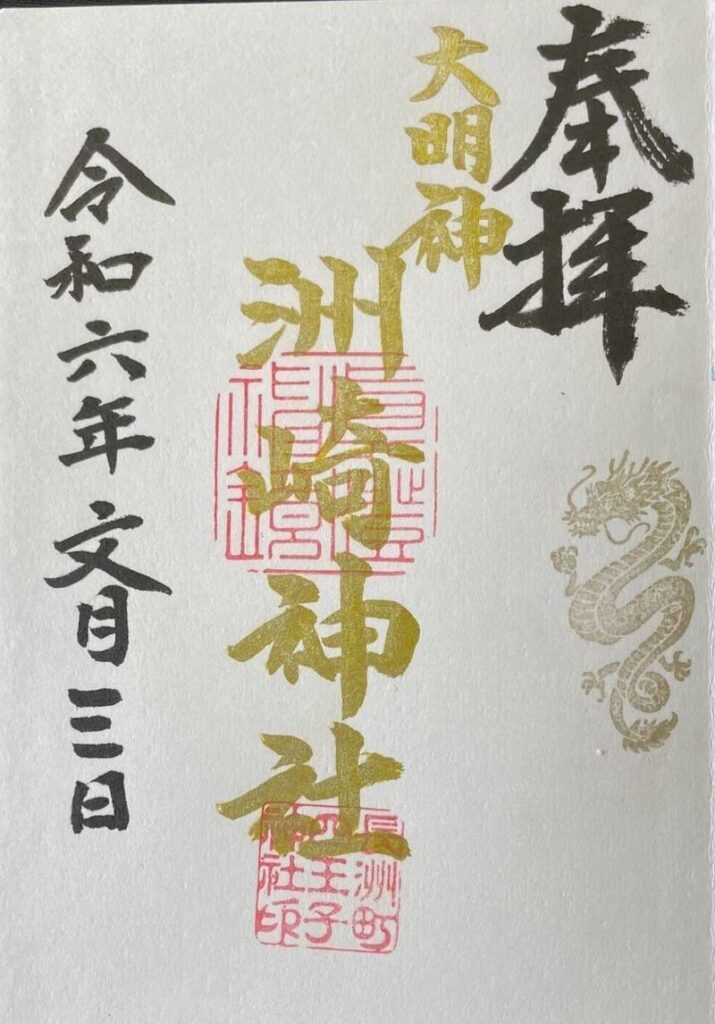 奉拝
大明神
洲崎神社
長洲町
四王子
神社印
令和六年文月三日